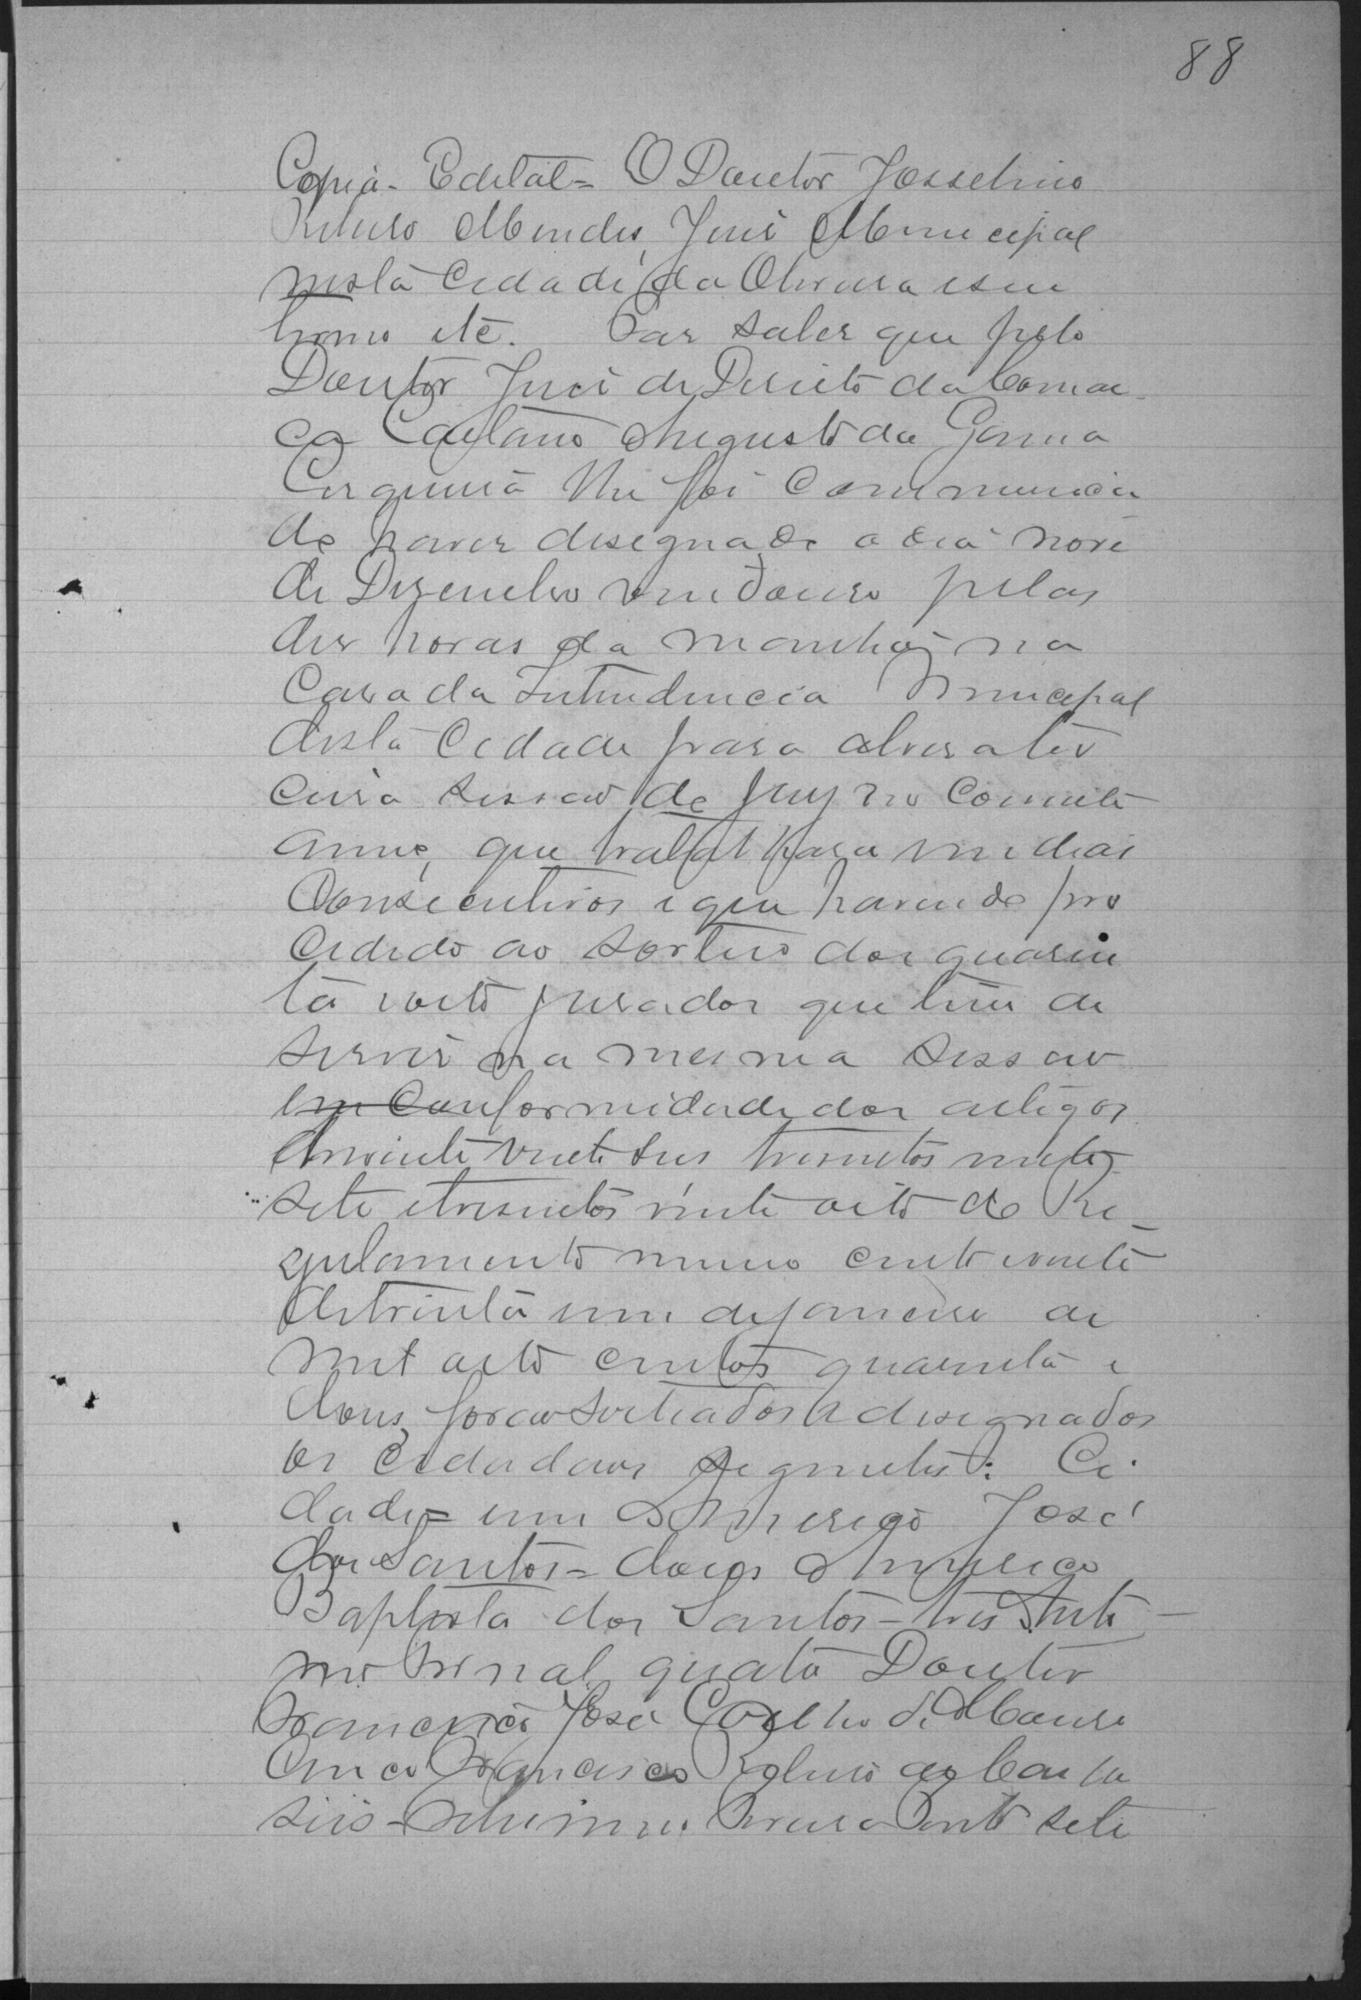 88
Copia. Edital = O Doutor Josselino
Ribeiro Mendes, Juis Municipal
nesta Cidade da Oliveira e seu
termo etc. Faz saber que pelo
Doutor Juis de Direito da Comar
ca Caetano Augusto da Gama
Cerqueira lhe foi Communica
do haver designado o dia nove
de Dezembro vindouro pelas
des horas da manhã na
Casa da Intendencia Municipal
desta Cidade para abrir a ter
ceira Sessao do Jury no Corrente
anno, que trabalhara em dias
Consecutivos e que havendo pro
cedido ao sorteio dos quaren
ta e oito jurados que tem de
servir na mesma Sessao
em Conformidade dos artigos
tresentos vinte seis tresentos vinte
sete e tresentos vinte oito do Re
gulamento numero cento e vinte
de trinta um de Janeiro de
mil oito centos quarenta e
dous, forao sorteados e designados
os Cidadaos seguintes: Ci
dade = um Americo José
dos Santos = dous Americo
Baptista dos Santos = tres Ante
quatro Doutor
Francisco José Coelho de Moura
Cinco Francisco Ribeiro da
seis = sete